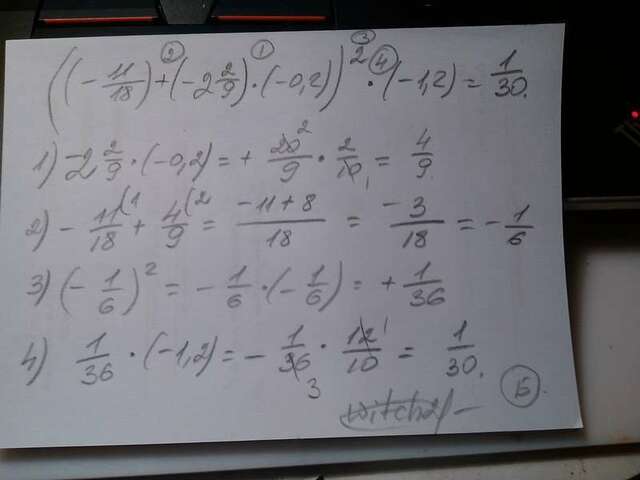 ((-11/18)+(-2 2/9)·(-0,2))²·(-1,2)=1/30.
1) -2 2/9·(-0,2)=+20/9·2/10=4/9
2) -11/18+4/9=(-11+8)/18=-3/18=-1/6
3) (-1/6)²=-1/6·(-1/6)=+1/36
4) 1/36·(-1,2)=-1/36·12/10=1/30.